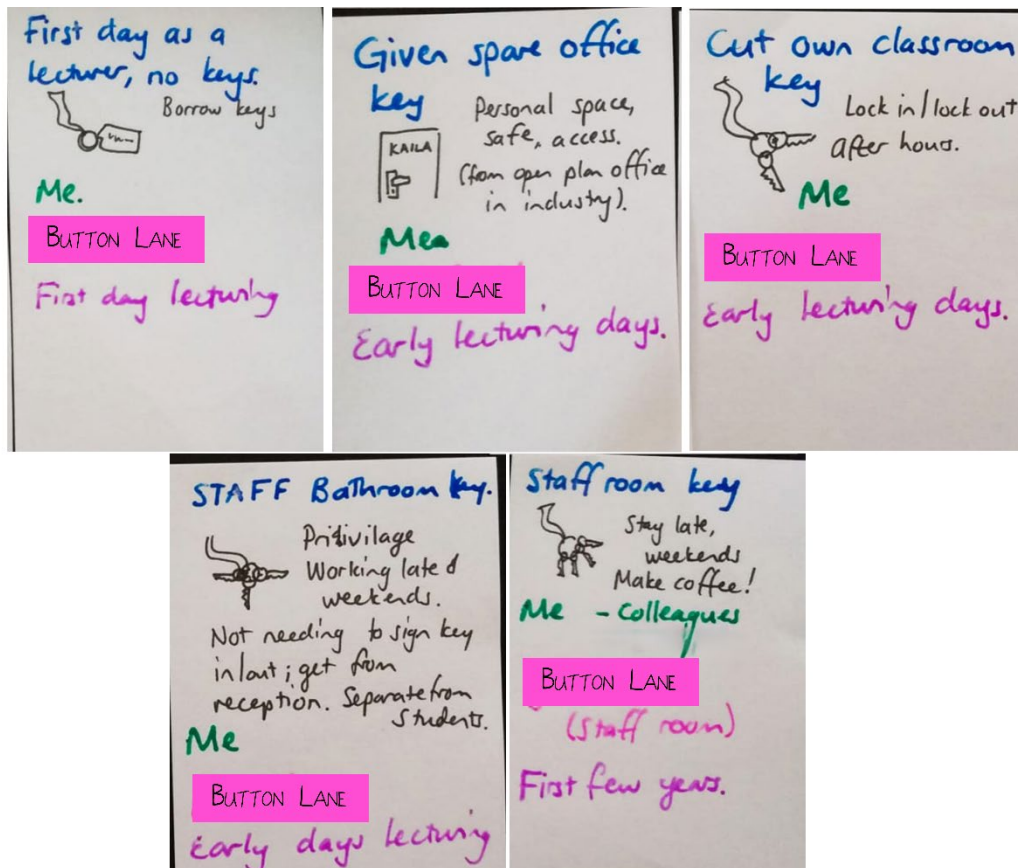 First day as a
lecturer, no keys.
Borrow keys
Me.
BUTTON LANE
First day lecturing
Given spare office
key
Personal space,
safe, access.
(from open plan office
in industry).
KAILA
Me
BUTTON LANE
Early lecturing days.
Cut own classroom
key
Lock in/lock out
after hours.
Me
BUTTON LANE
Early lecturing days.
STAFF Bathroom key.
Privilage
Working late &
weekends.
Not needing to sign key
in/out; get from
reception. Separate from
students.
Me
BUTTON LANE
Early days lecturing
Staff room key
Stay late,
weekends
Make coffee!
Me - Colleagues
BUTTON LANE
(Staff room)
First few years.